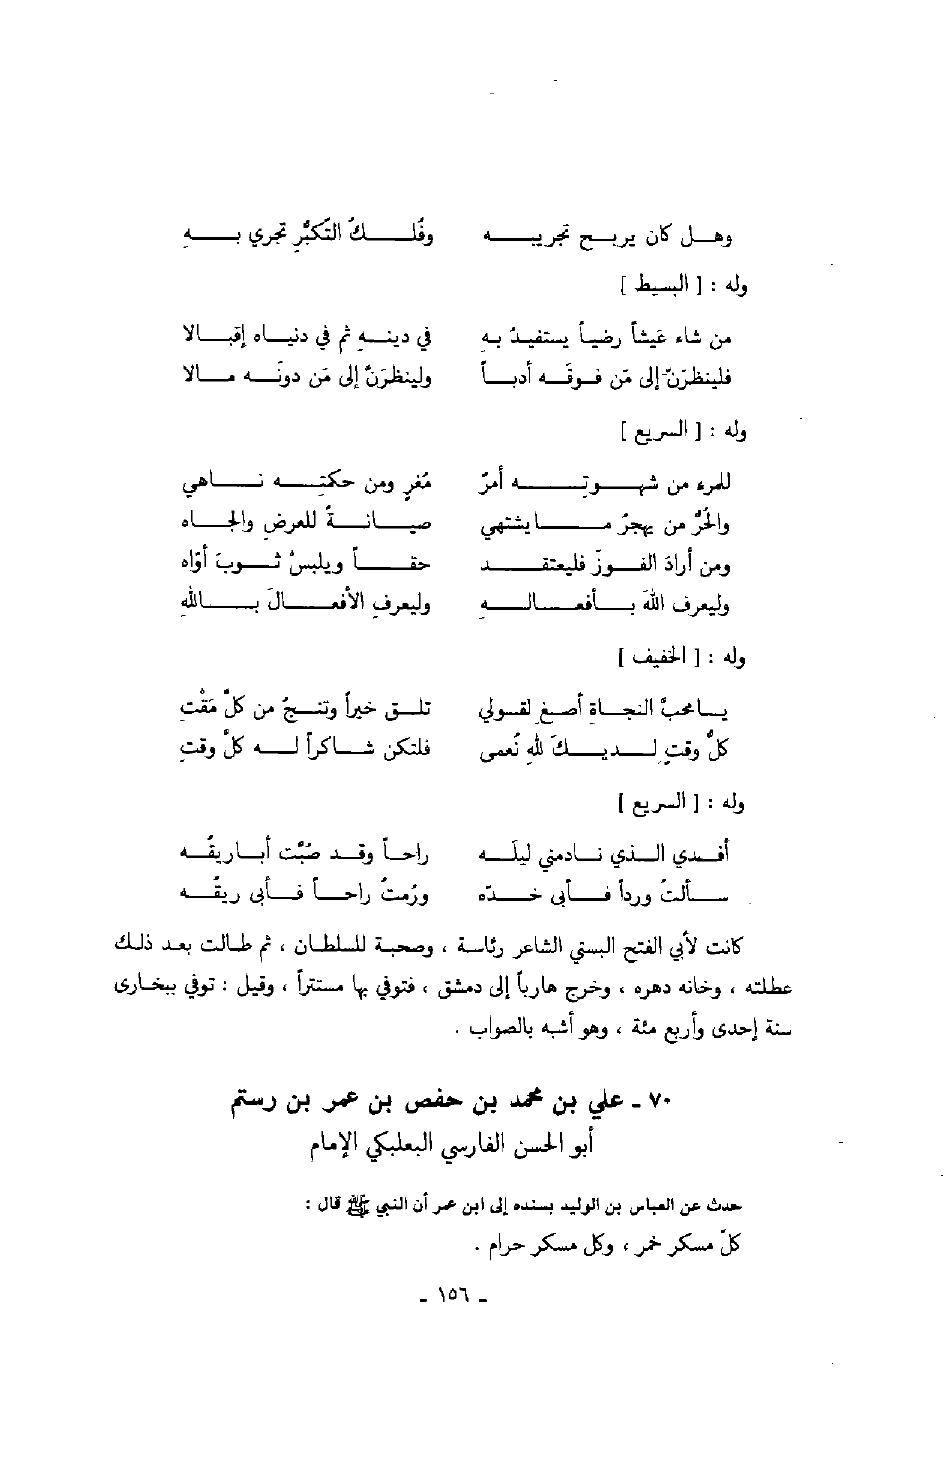 وهل كان يربح تجريبه وفُلكُ التّكبُّرِ تجري بهِ
وله : [ البسيط ]
من شاء عَيْشاً رضيّاً يستفيدُ به في دينهِ ثم في دنياه إقبالا
فلينظرَنّ إلى مَن فوقَه أدباً ولينظرَنّ إلى مَن دونَه مالا
وله : [ السريع ]
للمرء من شهوتِه أمرٌ مُغرٍ ومن حكمتِه ناهي
والحُرُّ من يهجرُ ما يشتهي صيانةً للعرضِ والجاه
ومن أرادَ الفوزَ فليعتقد حقاً ويلبسْ ثوبَ أوّاه
وليعرف اللهَ بأفعالهِ وليعرفِ الأفعالَ باللهِ
وله : [ الخفيف ]
يا محبَّ النجاةِ أصغِ لقولي تلق خيراً وتنجُ من كلِّ مَقْتِ
كلُّ وقتٍ لديكَ للهِ نُعمى فلتكن شاكراً له كلَّ وقتِ
وله : [ السريع ]
أفدي الذي نادمني ليلَه راحاً وقد صُبَّت أباريقُه
سألتُ ورداً فأبى خدّه ورُمتُ راحاً فأبى ريقُه
كانت لأبي الفتح البستي الشاعر رئاسة ، وصحبة للسلطان ، ثم طالت بعد ذلك
عطلته ، وخانه دهره ، وخرج هارباً إلى دمشق ، فتوفي بها مستتراً ، وقيل : توفي ببخارى
سنة إحدى وأربع مئة ، وهو أشبه بالصواب .
٧٠ ـ علي بن محمد بن حفص بن عمر بن رستم
أبو الحسن الفارسي البعلبكي الإمام
حدث عن العباس بن الوليد بسنده إلى ابن عمر أن النبي ﷺ قال :
كلّ مسكر خمر ، وكل مسكر حرام .
ـ ١٥٦ ـ